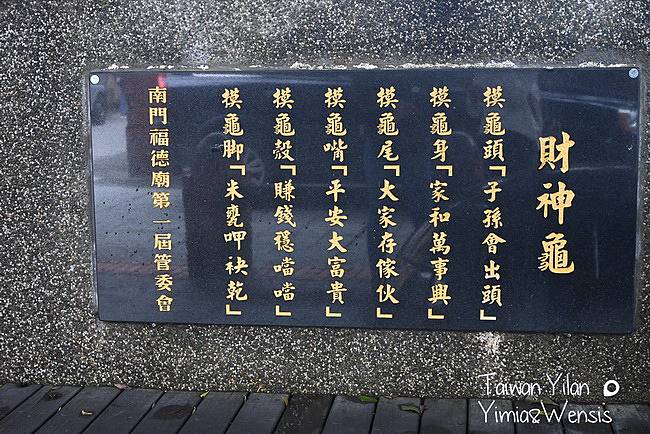 財神龜
摸龜頭「子孫會出頭」
摸龜身「家和萬事興」
摸龜尾「大家存傢伙」
摸龜嘴「平安大富貴」
摸龜殼「賺錢穩噹噹」
摸龜腳「米甕呷袂乾」
南門福德廟第一屆管委會
Taiwan Yilan
Yimia&Wensis